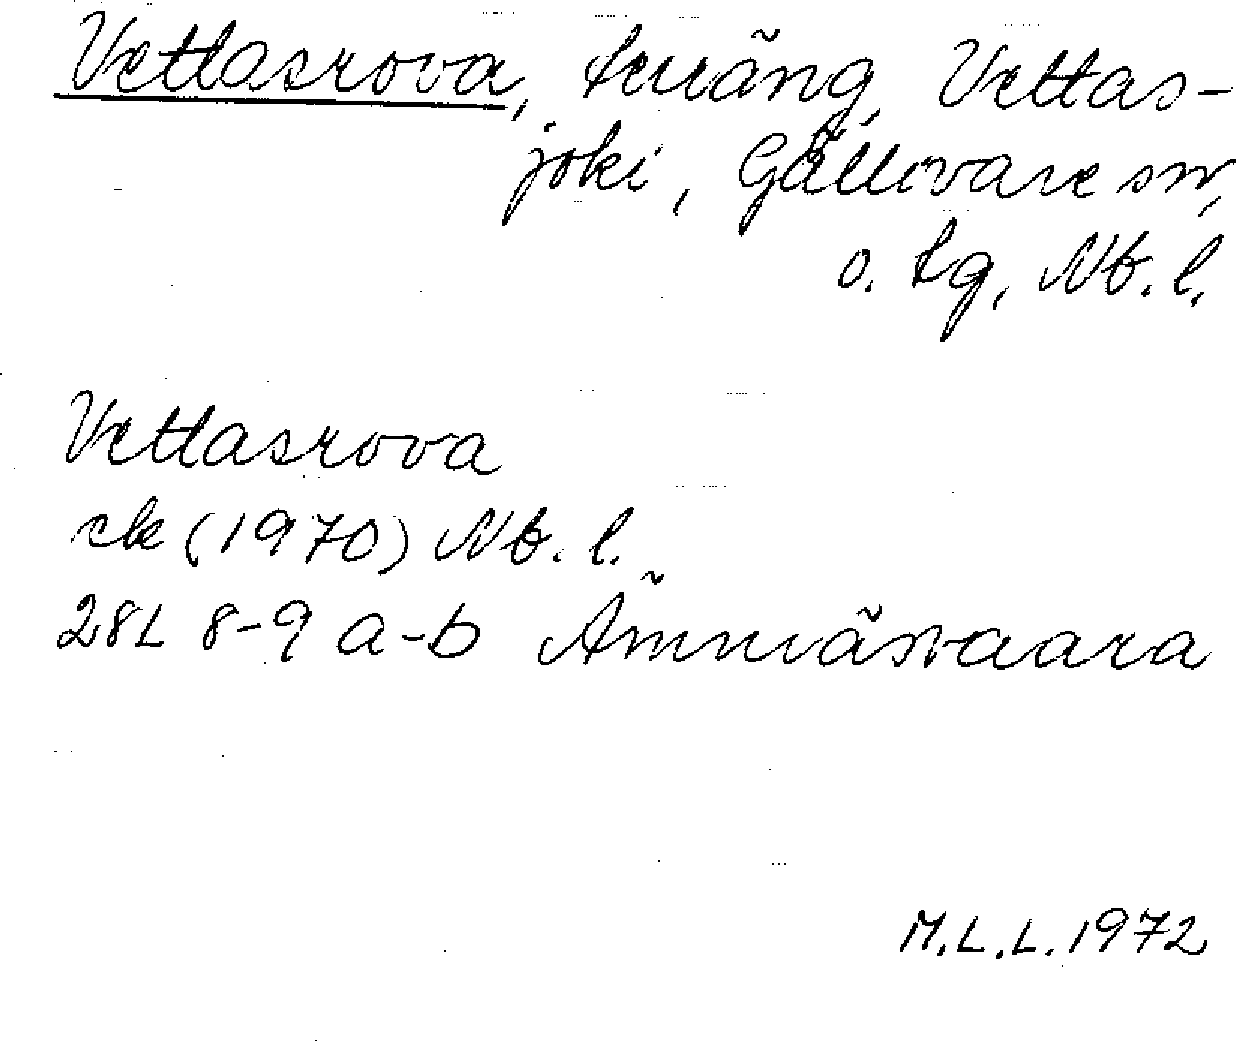 Vettasrova, terräng, Vettas-
joki, Gällivare sn,
o. tg, Nb. l.
Vettasrova
ek (1970) Nb. l.
28L 8-9 a-b Ämmävaara
M.L.L. 1972